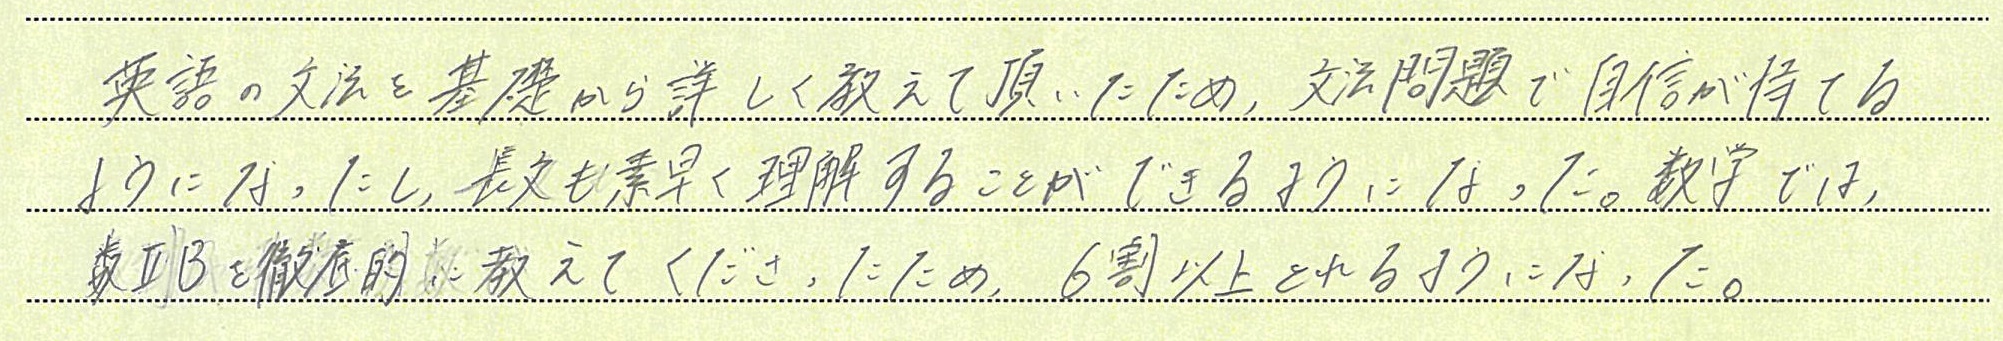 英語の文法を基礎から詳しく教えて頂いたため, 文法問題で自信が持てる
ようになったし, 長文も素早く理解することができるようになった。数学では,
数ⅡBを徹底的に教えてくださったため, 6割以上とれるようになった。